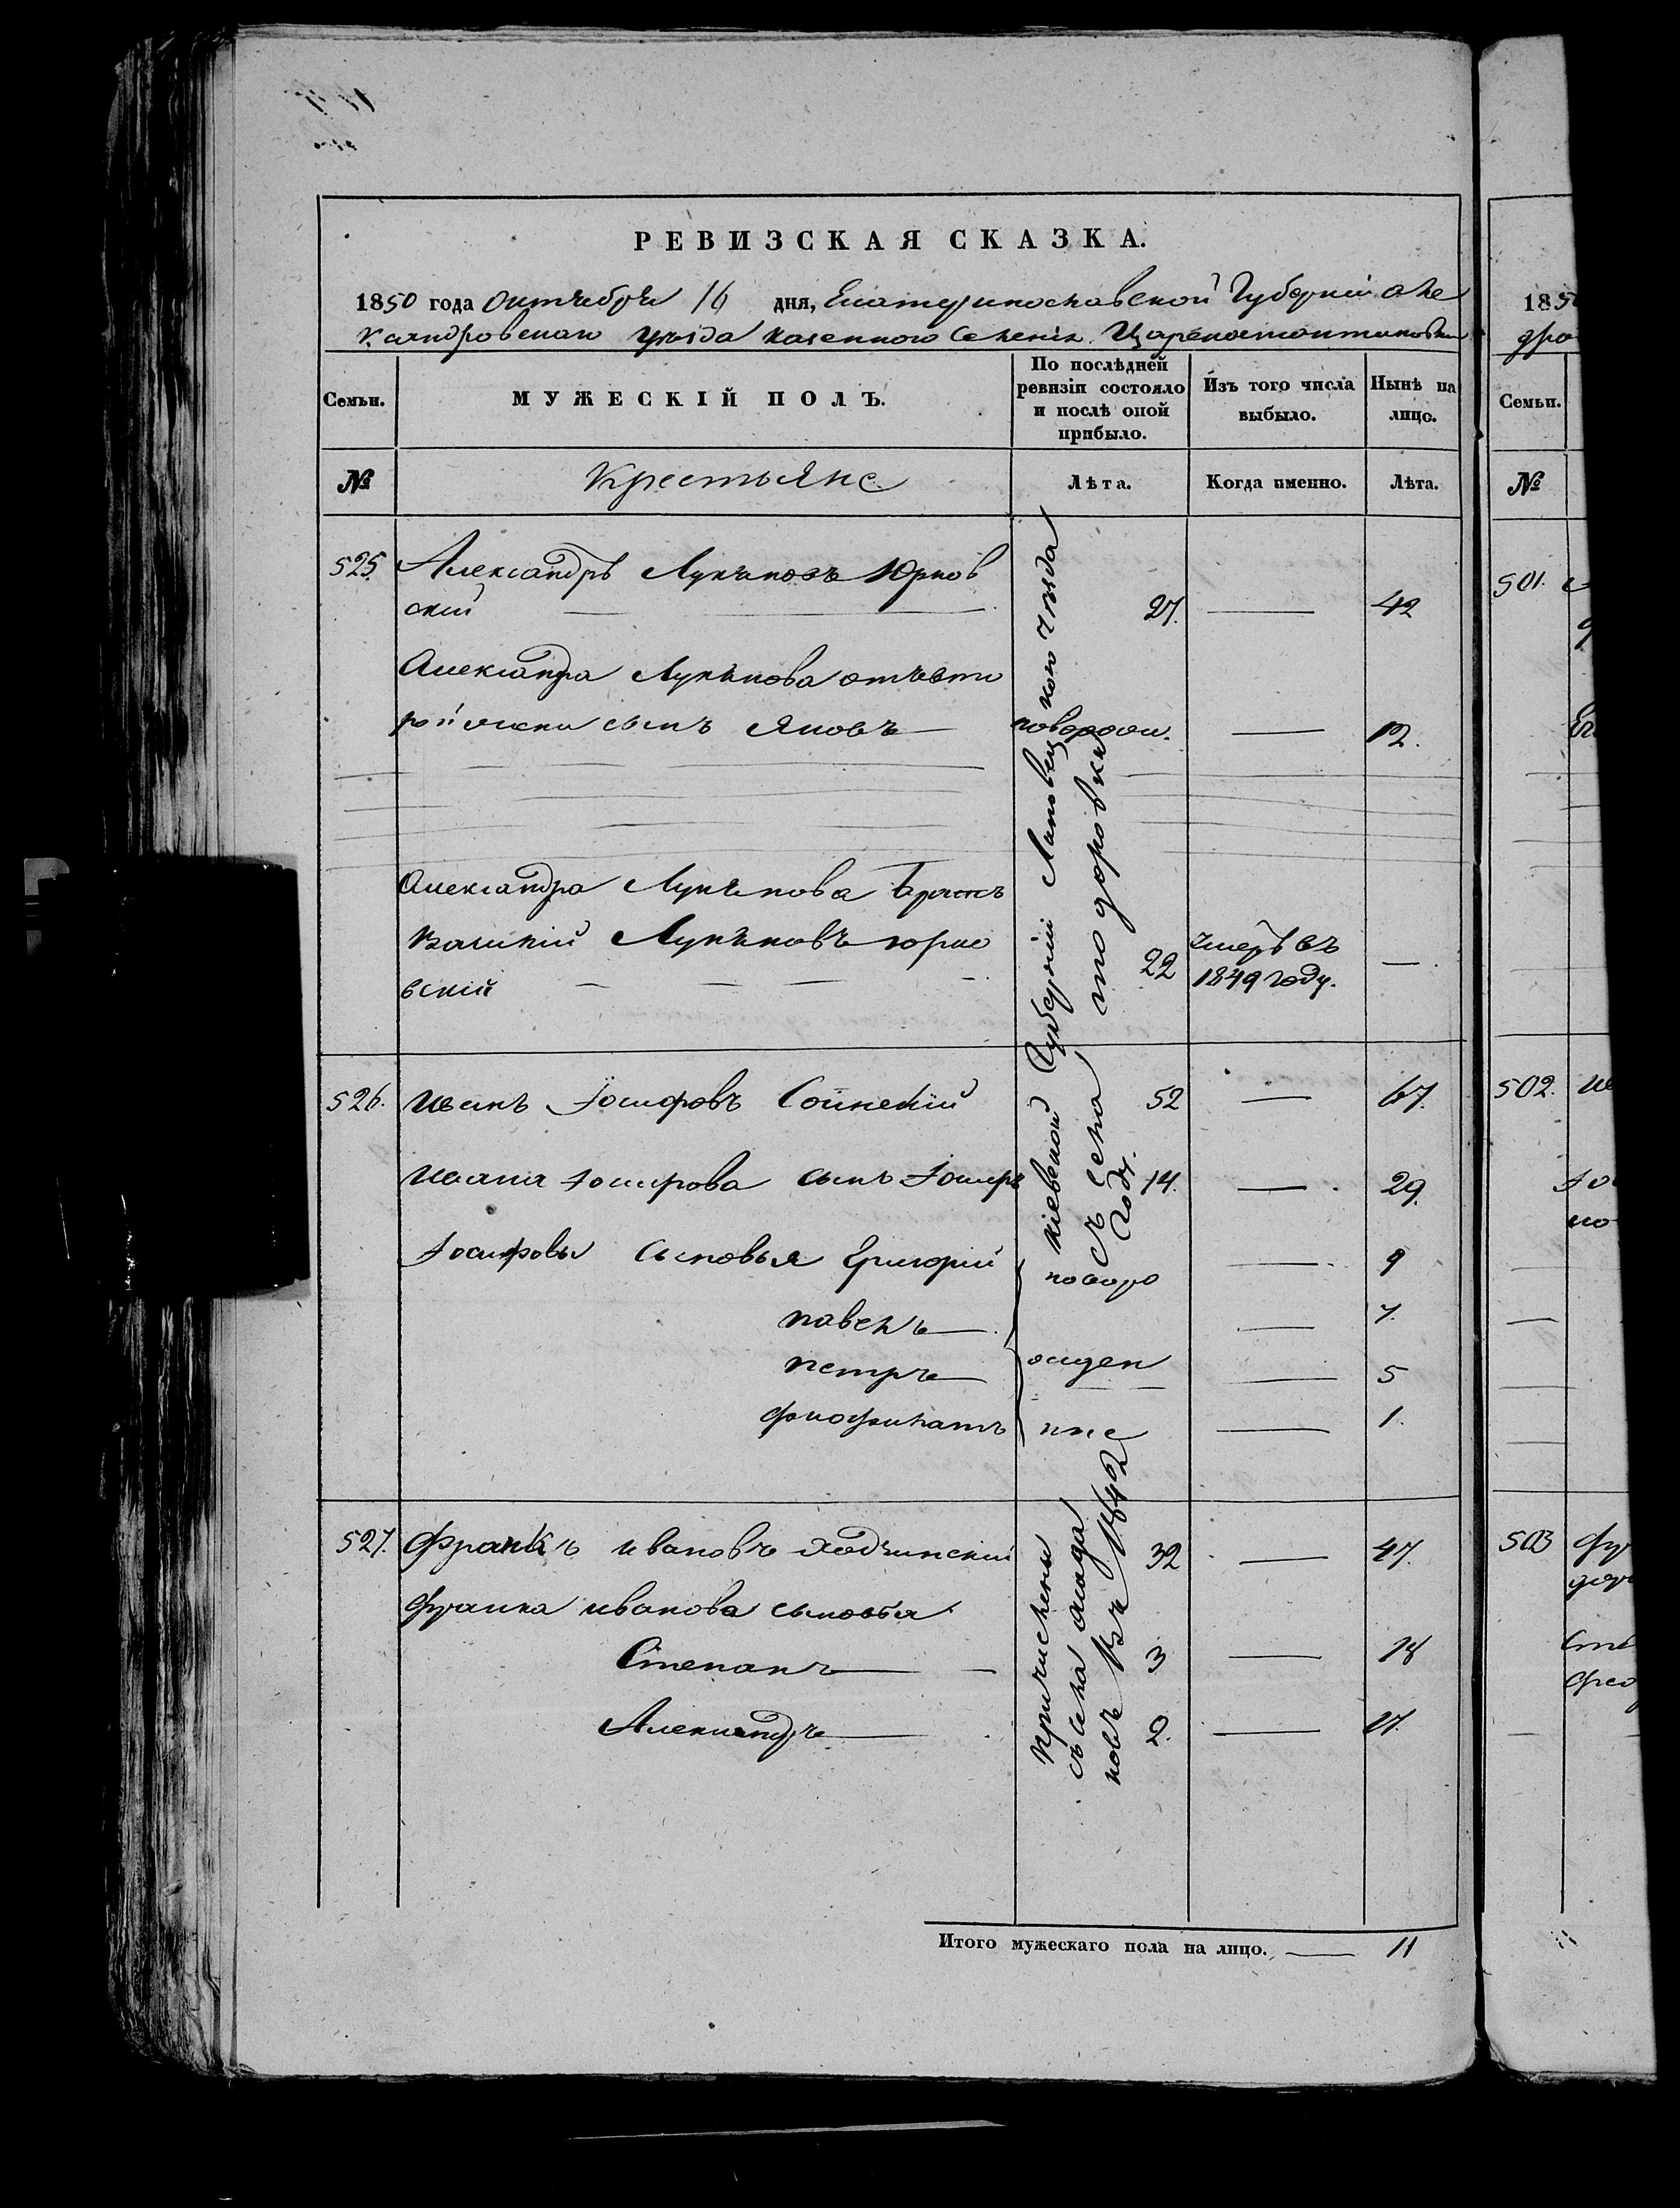 РЕВИЗСКАЯ СКАЗКА.
1850 года октября 16 дня, Екатеринославской Губерніи Але
ксандровскаго уезда казенного Селенія Цареконстантиновки
Семьи.
МУЖЕСКІЙ ПОЛЪ.
По послѣдней ревизіи состояло и послѣ оной прибыло.
Изъ того числа выбыло.
Нынѣ на лицо.
№
Крестьяне
Лѣта.
Когда именно.
Лѣта.
525. Александръ Лукьяновъ Юрков
скій 27. — 42
Александра Лукьянова отъ вто
рой жены сынъ Яковъ новорож. — 12.
Александра Лукьянова братъ
Василий Лукьяновъ юрко
вскій 22 умеръ въ 1849 году. —
526. Иванъ Іосифовъ Сойнскій 52 — 67.
Ивана Іосифова сынъ Іосифъ 14. — 29.
Іосифовы сыновья Григорій — 9
павелъ — 7.
петръ — 5
феофилатъ — 1.
новоро
жден
ные
527. Франкъ ивановъ Ходчинский 32 — 47.
Франка иванова сыновья
Степанъ — 3 — 18
Александръ — 2. — 17.
причислены Кіевской Губерніи Липовец кого уезда
съ села Лагода съ села тодоровки
новъ въ 1842 Году.
Итого мужескаго пола на лицо. — 11
185
дро
Семьи.
№
501.
502.
503